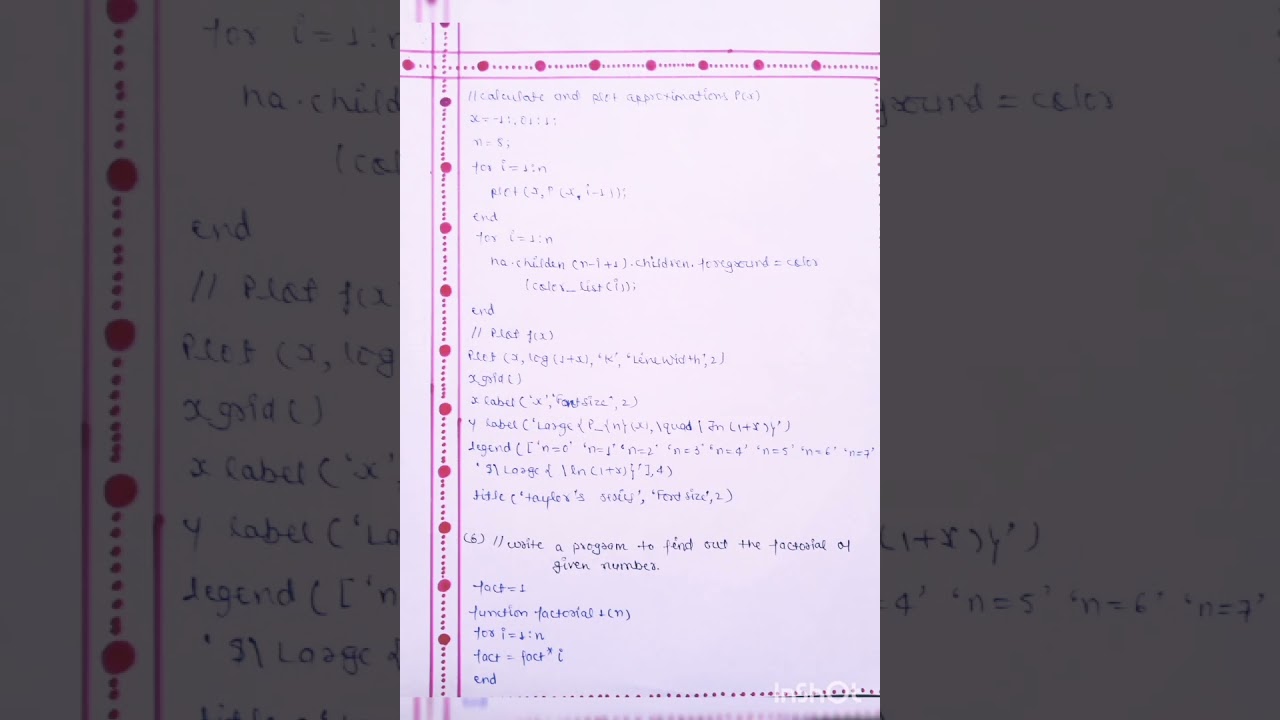 // calculate and plot approximations P(x)
x=-1:.01:1;
n=5;
for i=1:n
plot(x,P(x,i-1));
end
for i=1:n
ha.childen(n-i+1).children.foreground=color
(color_list(i));
end
// Plot f(x)
Plot (x,log(1+x),'k','LineWidth',2)
xgrid()
x label('x','Fontsize',2)
Y label('Large{P_{n}(x),\quad[ln(1+x)y')
legend(['n=0' 'n=1' 'n=2' 'n=3' 'n=4' 'n=5' 'n=6' 'n=7'
'$\Large{\ln(1+x)}'],4)
title('Taylor's series','Fontsize',2)
(6) // write a program to find out the factorial of
given number.
fact=1
function factorial 1(n)
for i=1:n
fact = fact*i
end
InShOt